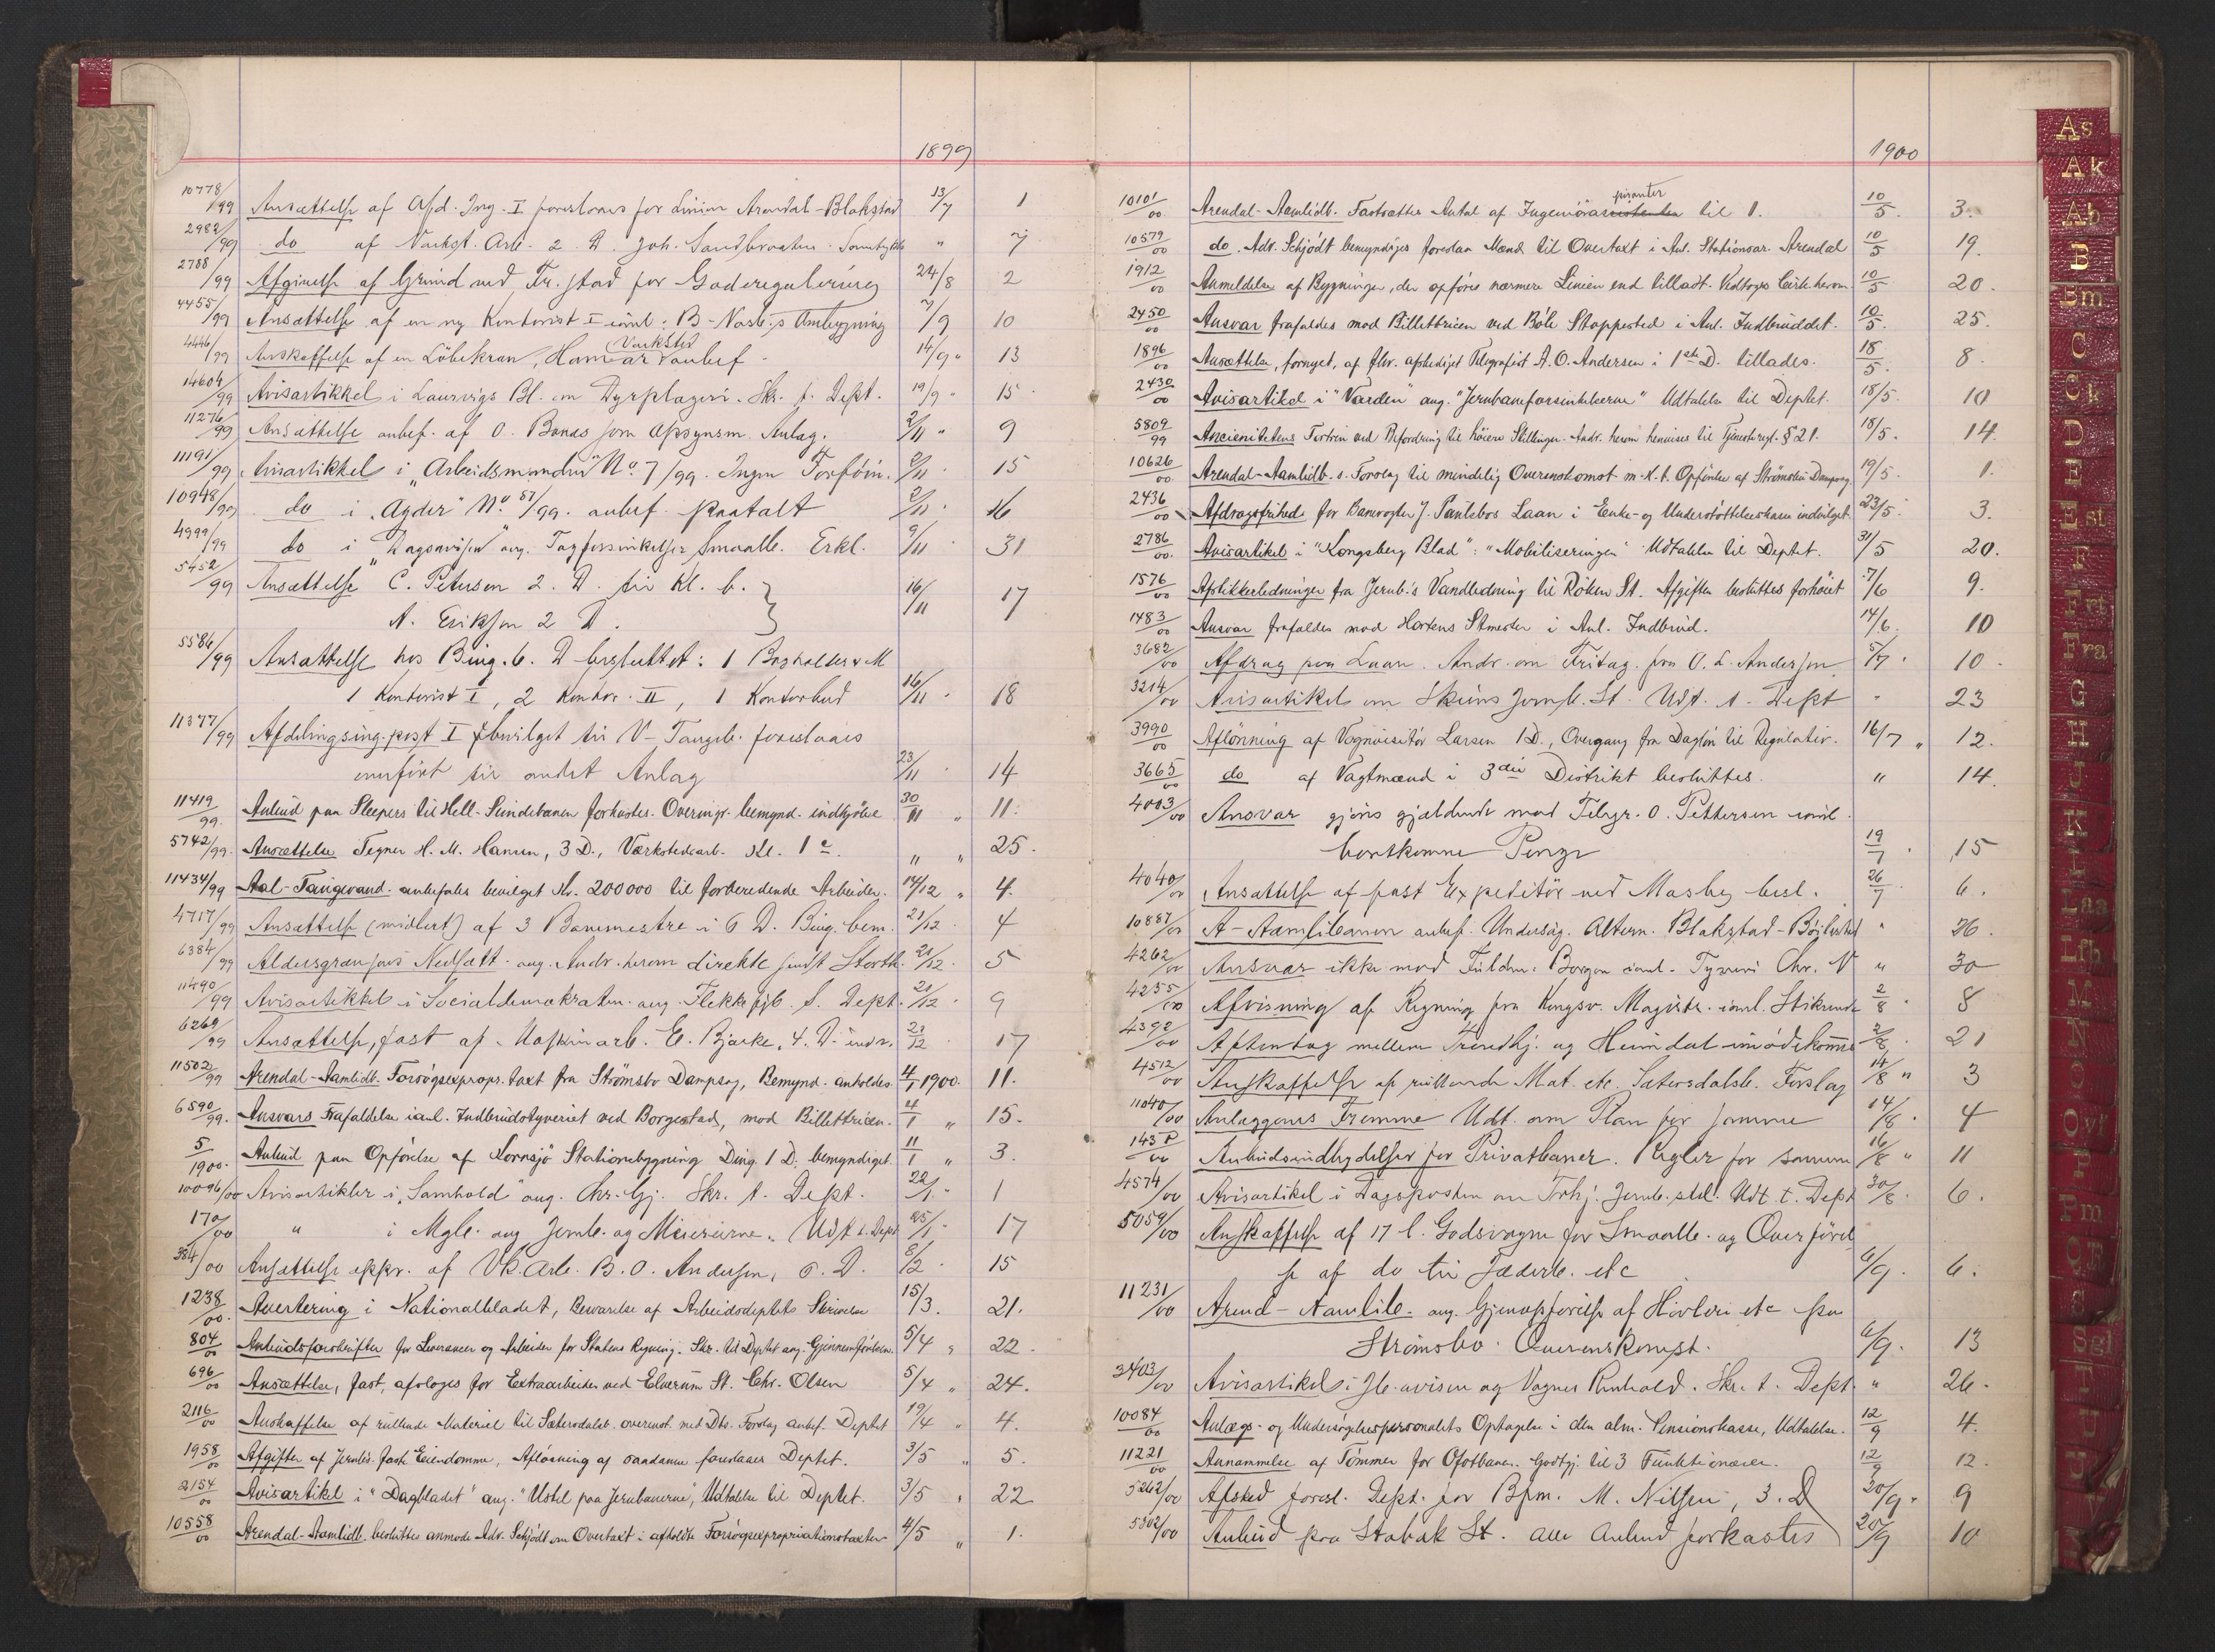 1899
10778/99 Ansættelse af Afd. Ing. I foreslaaes for Linien Arendal-Blakstad 13/7 1
2982/99 do af Værkst. Arb. 2. D. Joh. Sandbraaten. " 7
2788/99 Afgivelse af Grund ved Fr.stad for Gaderegulering 24/8 2
4455/99 Ansættelse af en ny Kontorist I B- Ombygning 7/9 10
4446/99 Anskaffelse af en Löbekran, Hamar Værksted anbef. 14/9 " 13
14604/99 Avisartikkel i Laurvigs Bl. om Dyrplageri. Skr. t. Dept. 19/9 " 15
11276/99 Ansættelse anbef. af O. Bonds som Opsynsm. Anlæg. 2/11 " 9
11191/99 Avisartikkel i "Arbeidsmanden" No. 7/99. Ingen Forföin. 2/11 15
10948/99 do i "Agder" No. 81/99. anbef. paatalt 2/11 16
4999/99 do i "Dagsavisen" ang. Togforsinkelser Smaalb. Erkl. 9/11 31
5452/99 Ansættelse C. Petersen 2. D. til Kl. b. 16/11 17
A. Eriksen 2 D.
5586/99 Ansættelse hos Bing. 6. D besluttet: 1 Bogholder v M
1 Kontorist I, 2 Kontor. II, 1 Kontorbud 16/11 18
11377/99 Afdelingsing.post I bevilget til V-Tangeb. foreslaaes
overfört til andet Anlæg 23/11 14
11419/99. Anbud paa Sleepers til Hell-Sundebanen forkastes. Overingr. bemynd. indkjöbe 30/11 " 11.
5742/99. Ansættelse Tegner H. M. Hansen, 3 D., Værkstedarb. Kl. 1 " " 25.
11434/99 Aal-Taugevand. anbefales bevilget Kr. 200000 til forberedende Arbeider. 14/12 " 4.
4717/99 Ansættelse (midlert) af 3 Banemestre i 6 D. Bing. bem. 21/12 4
6384/99 Aldersgrænsens Nedsætt. ang. Andr. herom direkte sendt Storth. 21/12. 5
11490/99 Avisartikkel i Socialdemokraten ang. Flekkefjb. S. Dept. 21/12. 9
6269/99 Ansættelse, fast af Maskinarb. E. Bjerke, 4. D. indv. 21/12 17
11502/99 Arendal-Aamlidb. Forsögsexprops.taxt fra Strömsbo Dampsag, Bemynd. anholdes. 4/1 1900. 11.
6590/99. Ansvars Frafaldelse ianl. Indbrudstyveriet ved Borgestad, mod Billettricen. 4/1 " 15.
5/1900. Anbud paa Opförelse af Kornsjö Stationsbygning Ding. 1 D. bemyndiget 11/1 " 3.
10096/00 Avisartikler i "Samhold" ang. Chr-Gj. Skr. t. Dept. 22/1 1
170/00 " i Mgbl. ang Jernb. og Meierierne. Udt t. Dept 25/1 17
384/00 Ansættelse appr. af Vk. Arb. B. O. Andersen, 6. D. 8/2 15
1238/00. Avertering i Nationalbladet, Besvarelse af Arbeidsdeptets Skrivelse 15/3. 21.
804/00 Anbudsforskrifter for Leverancer og Arbeider for Statens Regning. Skr. til Deptet ang. Gjennemförelsen. 5/4 " 22.
696/00 Ansættelse, fast, afslaaes for Extraarbeider ved Elverum St. Chr. Olsen 5/4 " 24.
2116/00 Anskaffelse af rullende Materiel til Sætersdalsb. overenst. med Dts. Forslag anbef. Deptet 19/4 " 4.
1958/00 Afgifter af Jernbs. faste Eiendomme, Aflösning af saadanne foreslaaes Deptet. 3/5 " 5.
2154/00 Avisartikel i "Dagbladet" ang. "Ustel paa Jernbanerne", Udtalelse til Deptet. 3/5 " 22
10558/00 Arendal-Aamlidb. besluttes anmode Adv. Schjödt om Overtaxt i afholdte Forsögsexpropriationstaxter 4/5 " 1.
1900
10101/00 Arendal-Aamlidb. Fastsættes Antal af Ingeniöraspiranter til 1. 10/5. 3.
10579/00 do. Adv. Schjödt bemyndiges foreslaa Mænd til Overtaxt i Anl. Stationsar. Arendal 10/5 19.
1912/00 Anmeldelse af Bygninger, der opföres nærmere Linien end tilladt. Vedtages Cirk. herom 10/5 20.
2450/00 Ansvar frafaldes mod Billettricen ved Böle Stoppested i Anl. Indbruddet. 10/5. 25.
1896/00 Ansættelse, fornyet, af fhv. afskediget Telegrafist A. O. Andersen i 1ste D. tillades. 18/5. 8.
2430/00 Avisartikel i "Varden" ang. "Jernbaneforsinkelserne" Udtalelse til Deptet. 18/5. 10
5809/99 Ancienitetens Fortrin ved Befordring til höiere Stillinger. Andr. herom henvises til Tjenestregl. § 21. 18/5. 14.
10626/00 Arendal-Aamlidb. s. Forslag til mindelig Overenskomst m. H. t. Opförelse af Strömsbu Dampsag 19/5. 1.
2436/00 Afdragsfrihed for Banevogter J. Paulsbos Laan i Enke- og Understöttelseskasse indvilget. 23/5. 3.
2786/00. Avisartikel i "Kongsberg Blad": "Mobiliseringen" Udtalelse til Deptet. 31/5 20.
1576/00 Afstikkerledninger fra Jernb.'s Vandledning til Röken St. Afgiften besluttes forhöiet 7/6 9.
1483/00 Ansvar frafaldes mod Hortens Stmester i Anl. Indbrud. 14/6. 10
3682/00 Afdrag paa Laan. Andr. om Fritag. fra O. L. Andersen 5/7. 10.
3214/00 Avisartikel om Skiens Jernb. St. Udt. t. Dept " 23
3990/00 Aflönning af Vognvisitör Larsen 1 D., Overgang fra Daglön til Regulativ. 16/7 " 12.
3665/00 do af Vagtmænd i 3die Distrikt besluttes. " 14.
4003/00 Ansvar gjöres gjældende mod Telegr. O. Pettersen ianl.
bortkomne Penge 19/7. 15
4040/00 Ansættelse af fast Expeditör ved Mosby besl. 26/7 6.
10887/00 A-Aamlibanen anbef. Undersög. Altern. Blakstad-Böilestad " 26.
4262/00 Ansvar ikke mod Fuldm. Borgen ianl. Tyveri Chr. V " 30
4255/00 Afvisning af Regning fra Kongsv. Magistr. ianl. Stikrende 2/8. 8
4392/00 Aftentog mellem Trondhj. og Heimdal imödekommes 2/8. 21
4512/00 Anskaffelse af rullende Mat. etc. Sætersdalsb. Forslag 14/8 " 3
11040/00 Anlæggenes Fremme Udt. om Plan for samme 14/8. 4
143 P/00 Anbudsindbydelser for Privatbaner. Regler for samme 16/8 " 11
4574/00 Avisartikel i Dagsposten om Trhj. Jernb. std. Udt. t. Dept 30/8. 6.
5059/00 Anskaffelse af 17 l. Godsvogne for Smaalb. og Overförel
se af do til Jæderb. etc 6/9. 6.
11231/00 Arend-Aamlib. ang. Gjenopförelse af Hövleri etc paa
Strömsbo. Overenskomst. 6/9. 13
3403/00 Avisartikel i Jb. avisen og Vognes Renhold. Skr. t. Dept. " 26.
10084/00 Anlægs- og Undersögelsespersonalets Optagelse i den alm. Pensionskasse, Udtalelse. 12/9 4.
11221/00 Annammelse af Tömmer for Ofotbanen. Godtgj. til 3 Funktionærer. 12/9 12.
5262/00 Afsked foresl. Dept. for Bfm. M. Nilsen, 3. D 20/9. 9
5302/00 Anbud paa Stabæk St. alle Anbud forkastes 20/9 10
As
Ak
Ab
B
Bm
C
Ck
D
E
E
Est
F
Frt
Fra
G
H
H
J
K
L
Laa
Lfb
M
N
O
Ovf
P
Pm
Q R
S
Sgl
T
U
V